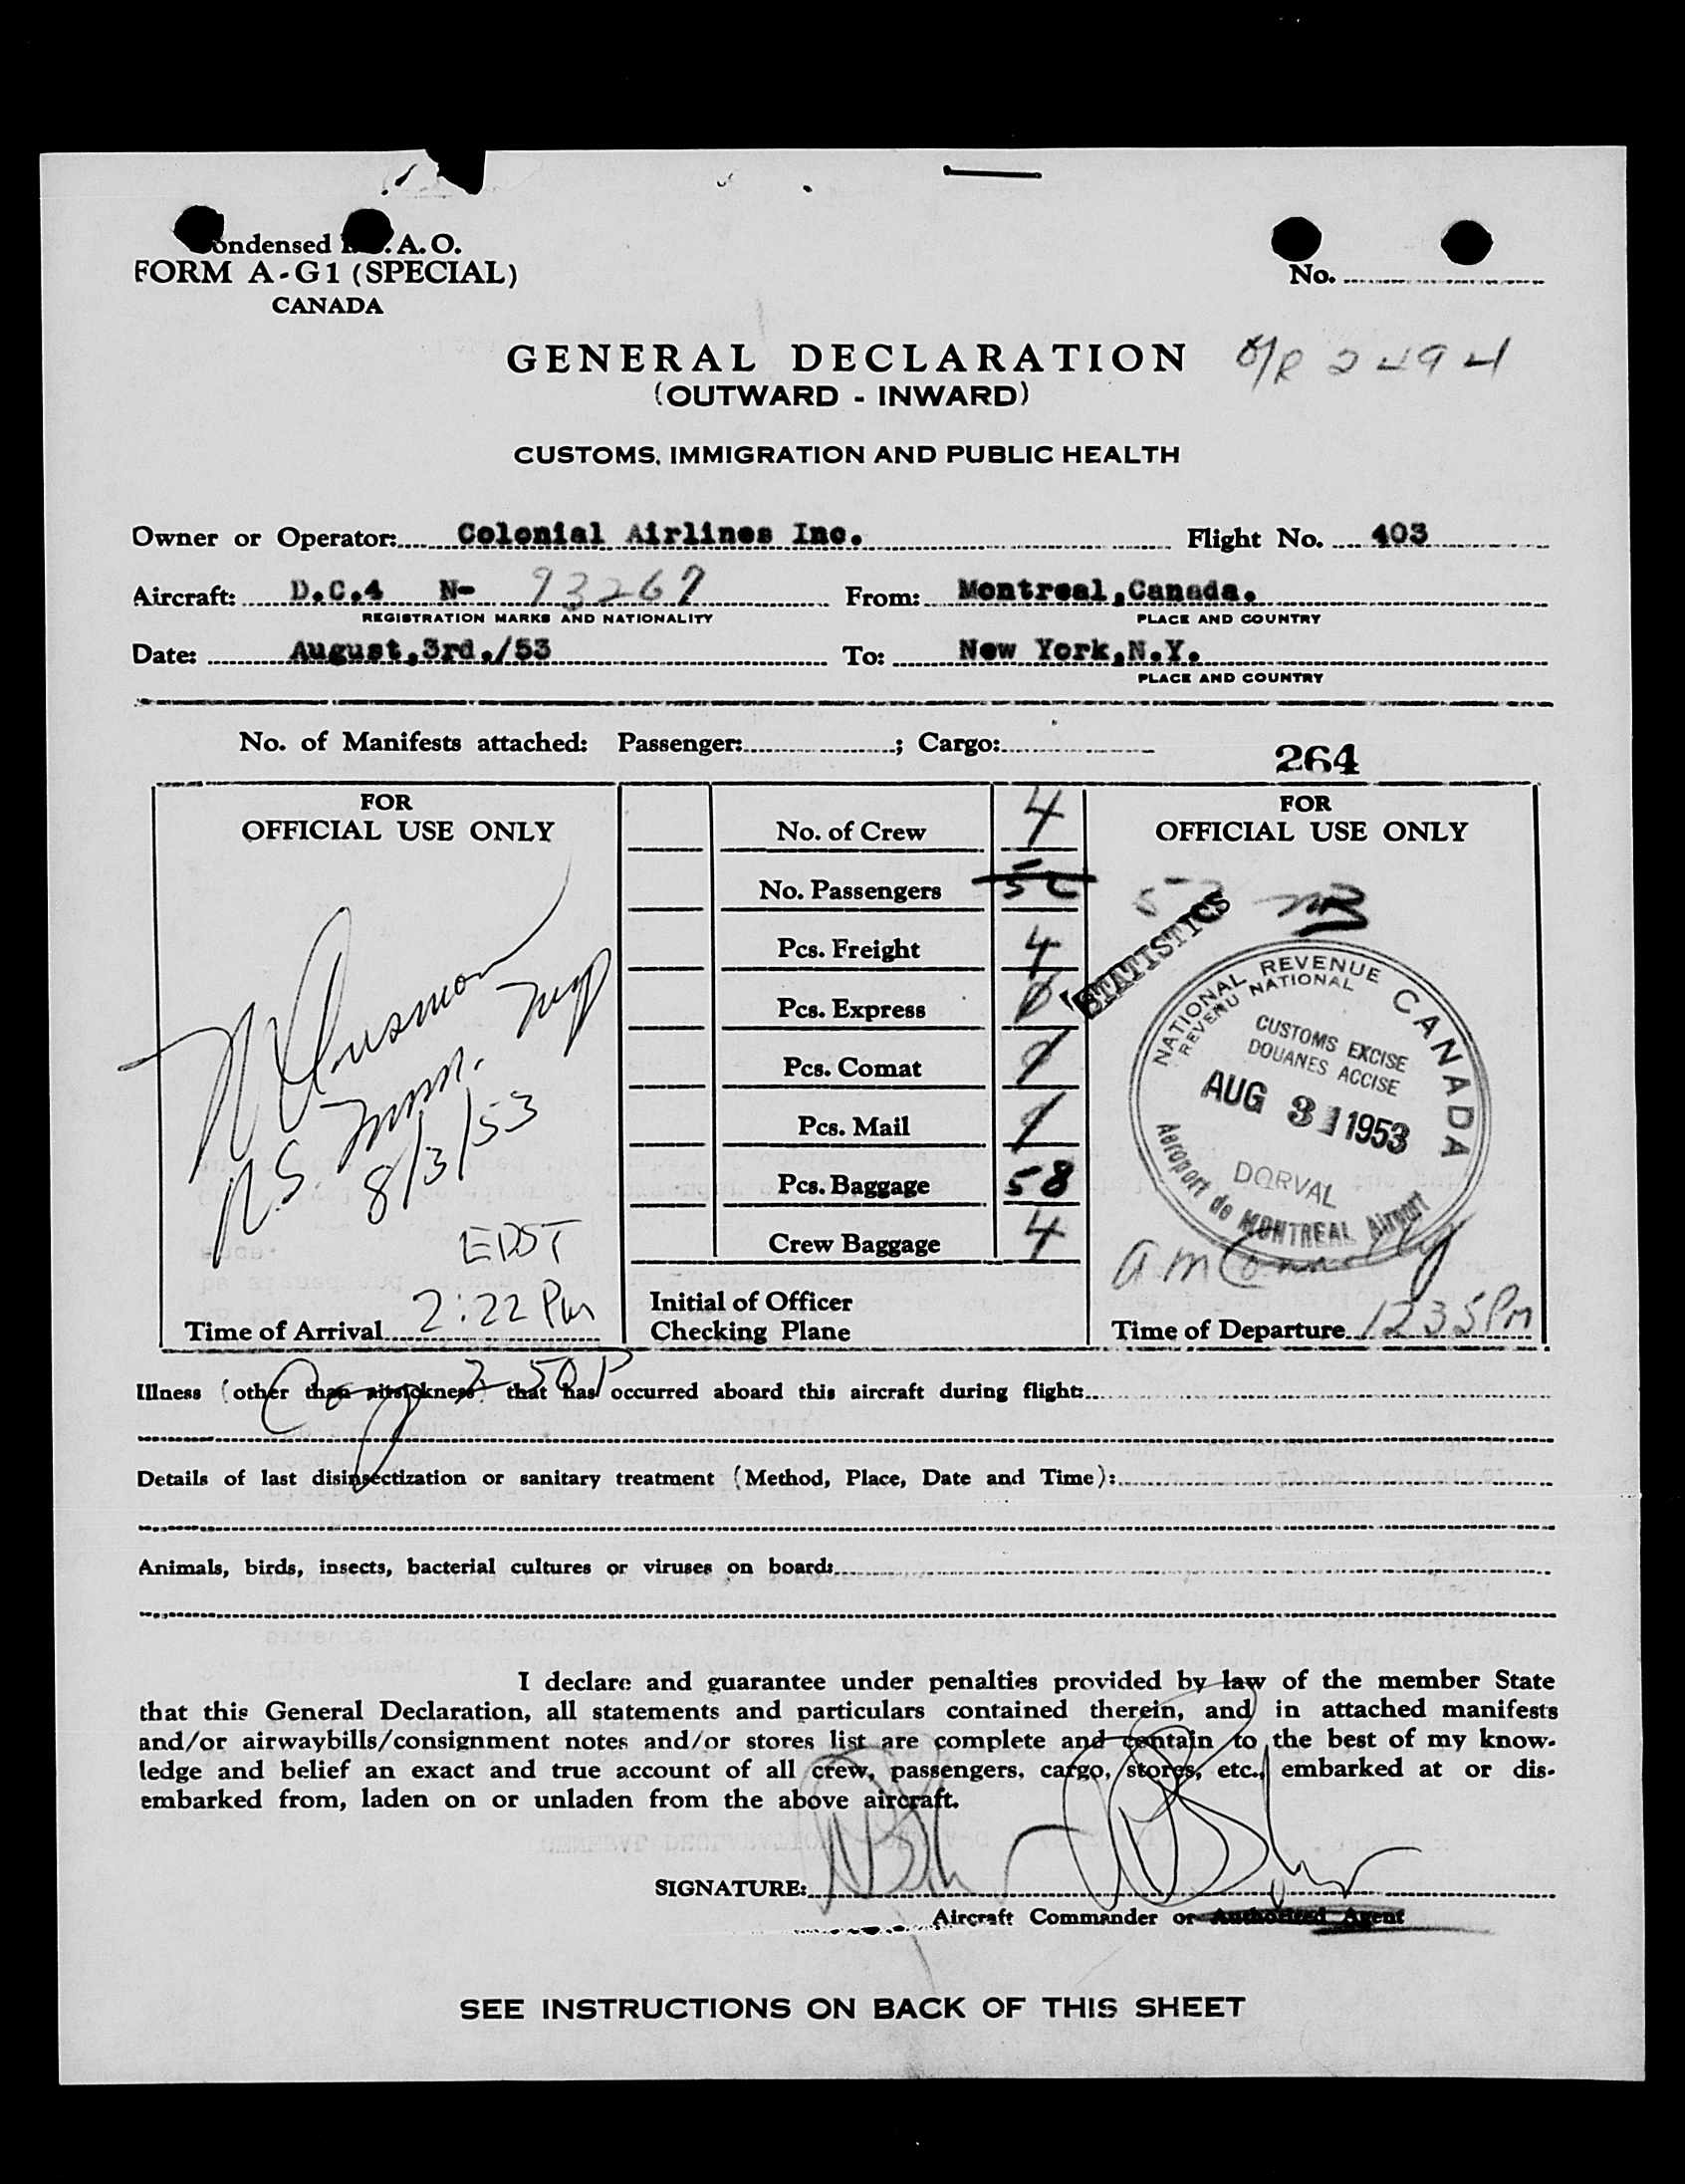 Condensed I.C.A.O.
FORM A-G1 (SPECIAL)
CANADA
No.
GENERAL DECLARATION
O/R 2494
(OUTWARD - INWARD)
CUSTOMS, IMMIGRATION AND PUBLIC HEALTH
Owner or Operator: Colonial Airlines Inc. Flight No. 403
Aircraft: D.C.4 N- 93267 From: Montreal, Canada.
REGISTRATION MARKS AND NATIONALITY PLACE AND COUNTRY
Date: August, 3rd,/53 To: New York, N.Y.
PLACE AND COUNTRY
No. of Manifests attached: Passenger: ; Cargo:
264
FOR
OFFICIAL USE ONLY
8/3/53
EDST
Time of Arrival 2:22 Pm
No. of Crew 4
No. Passengers 52
Pcs. Freight 4
Pcs. Express
Pcs. Comat
Pcs. Mail
Pcs. Baggage 58
Crew Baggage 4
Initial of Officer
Checking Plane
FOR
OFFICIAL USE ONLY
STATISTICS
NATIONAL REVENUE CANADA
REVENU NATIONAL
CUSTOMS EXCISE
DOUANES ACCISE
AUG 3 1953
DORVAL
Aeroport de MONTREAL Airport
Time of Departure 1235 Pm
2 50 P
Illness (other than airsickness) that has occurred aboard this aircraft during flight:
Details of last disinsectization or sanitary treatment (Method, Place, Date and Time):
Animals, birds, insects, bacterial cultures or viruses on board:
I declare and guarantee under penalties provided by law of the member State
that this General Declaration, all statements and particulars contained therein, and in attached manifests
and/or airwaybills/consignment notes and/or stores list are complete and contain to the best of my know-
ledge and belief an exact and true account of all crew, passengers, cargo, stores, etc., embarked at or dis-
embarked from, laden on or unladen from the above aircraft.
SIGNATURE:
Aircraft Commander or Authorized Agent
SEE INSTRUCTIONS ON BACK OF THIS SHEET